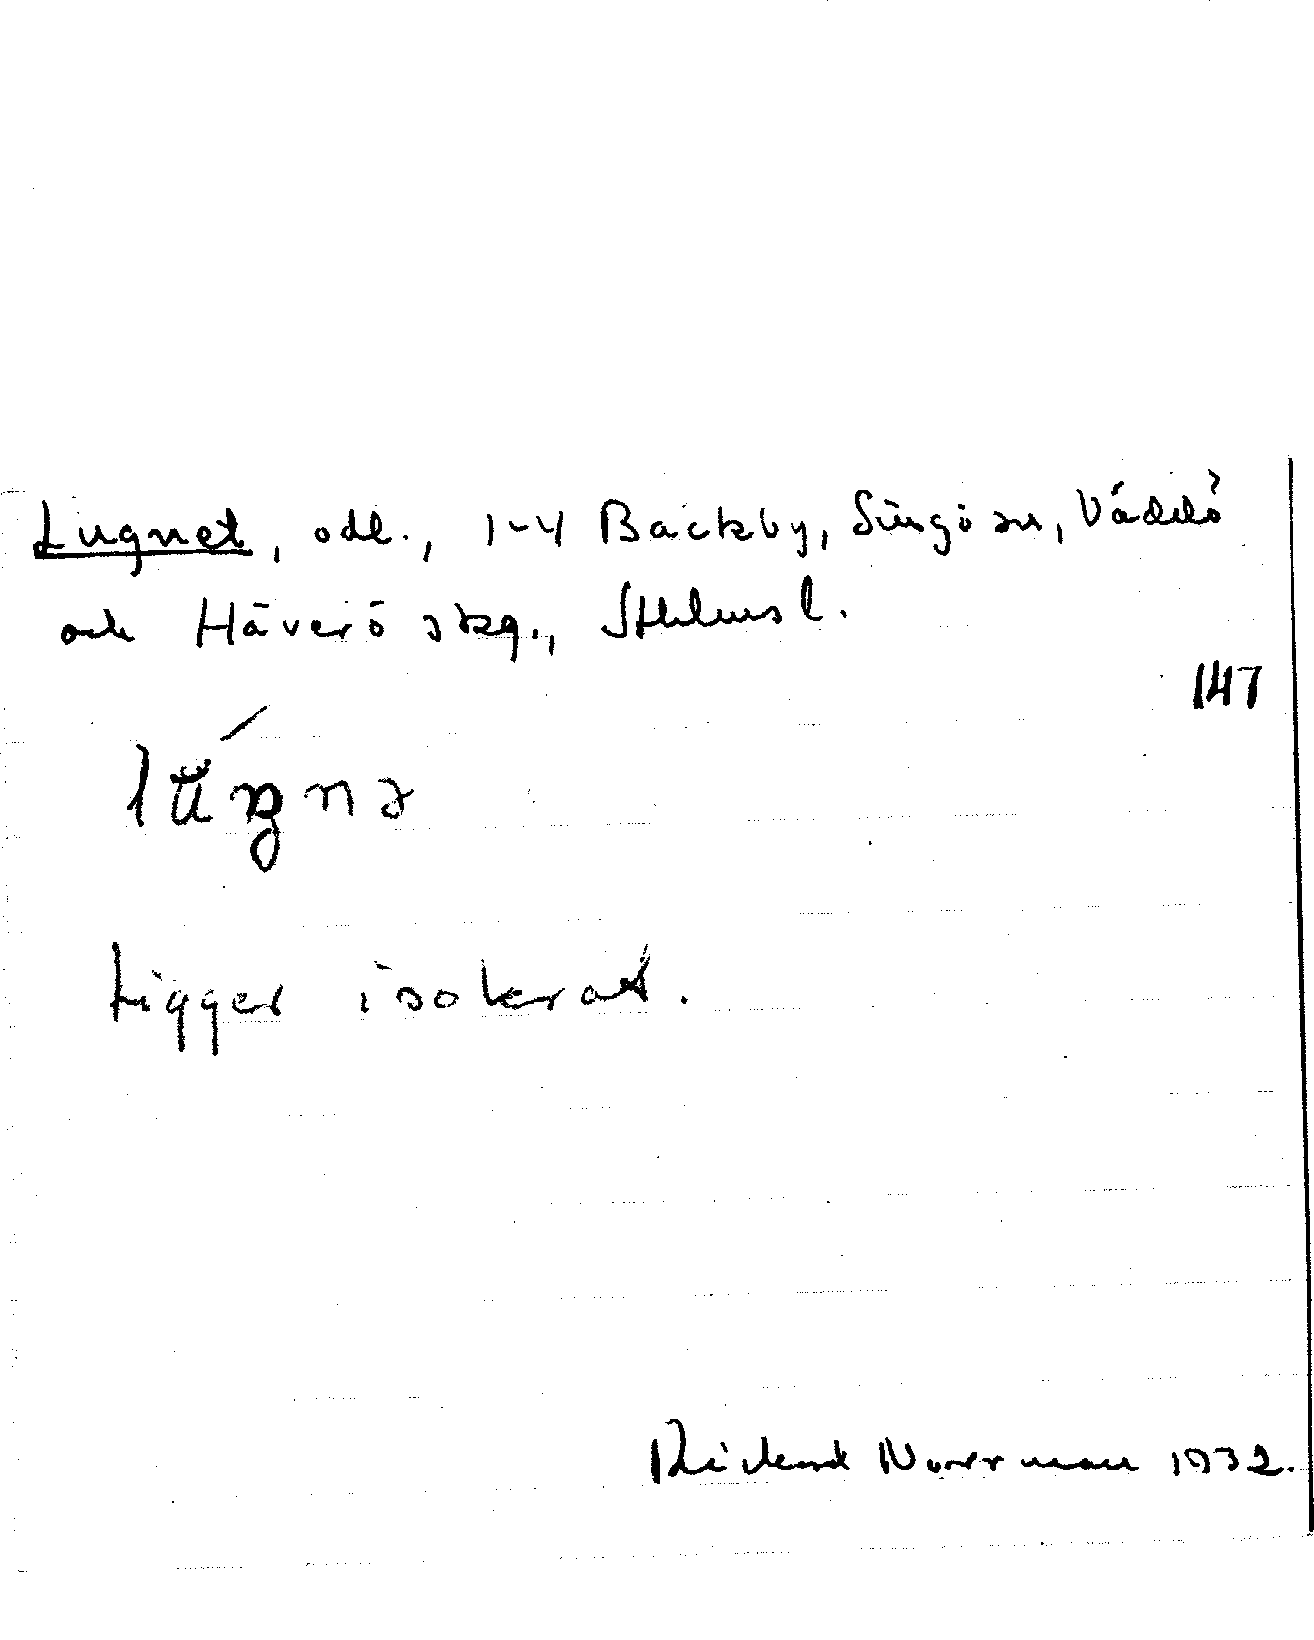 Lugnet, odl., 1-4 Backby, Singö sn, Väddö
och Häverö skg., Sthlms l.
147
Ligger isolerat.
Rickard Norrman 1932.